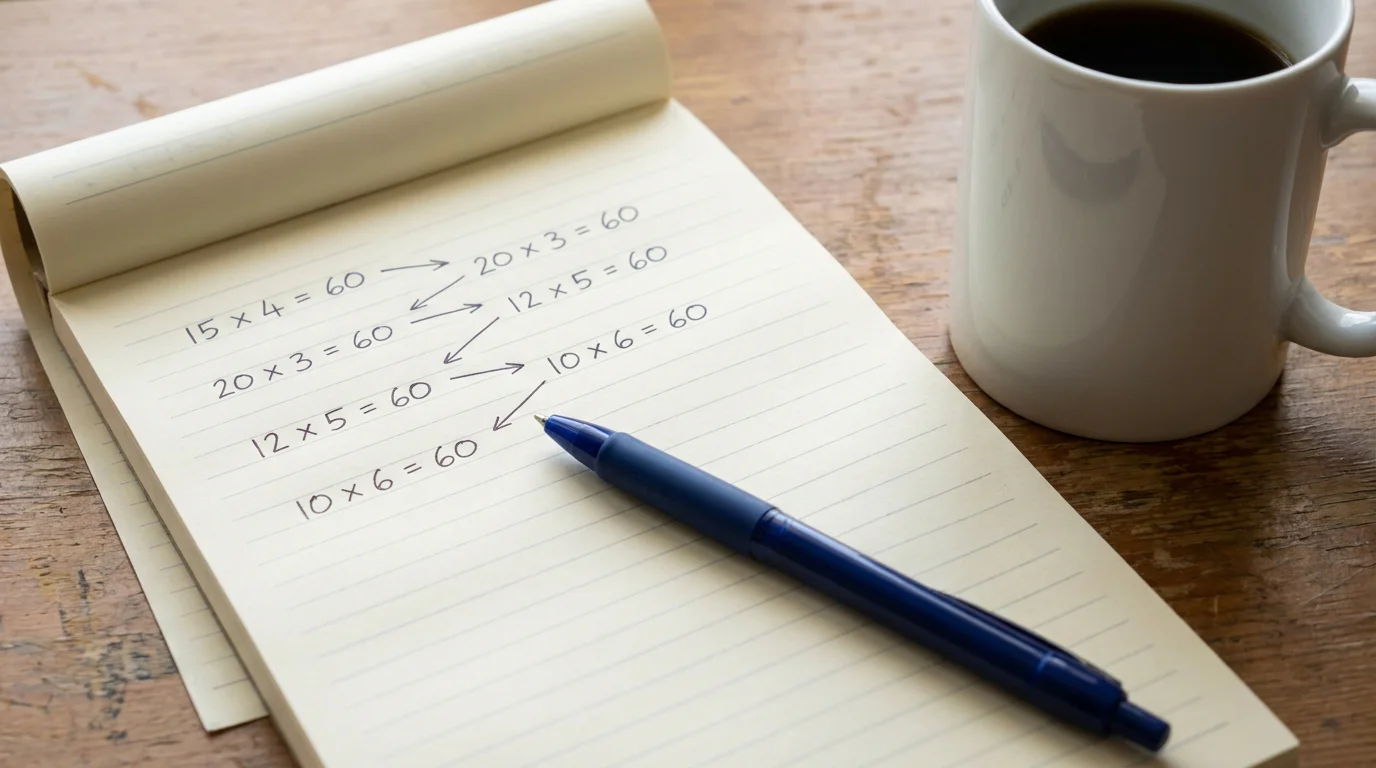 15 × 4 = 60 → 20 × 3 = 60
20 × 3 = 60 → 12 × 5 = 60
12 × 5 = 60 → 10 × 6 = 60
10 × 6 = 60